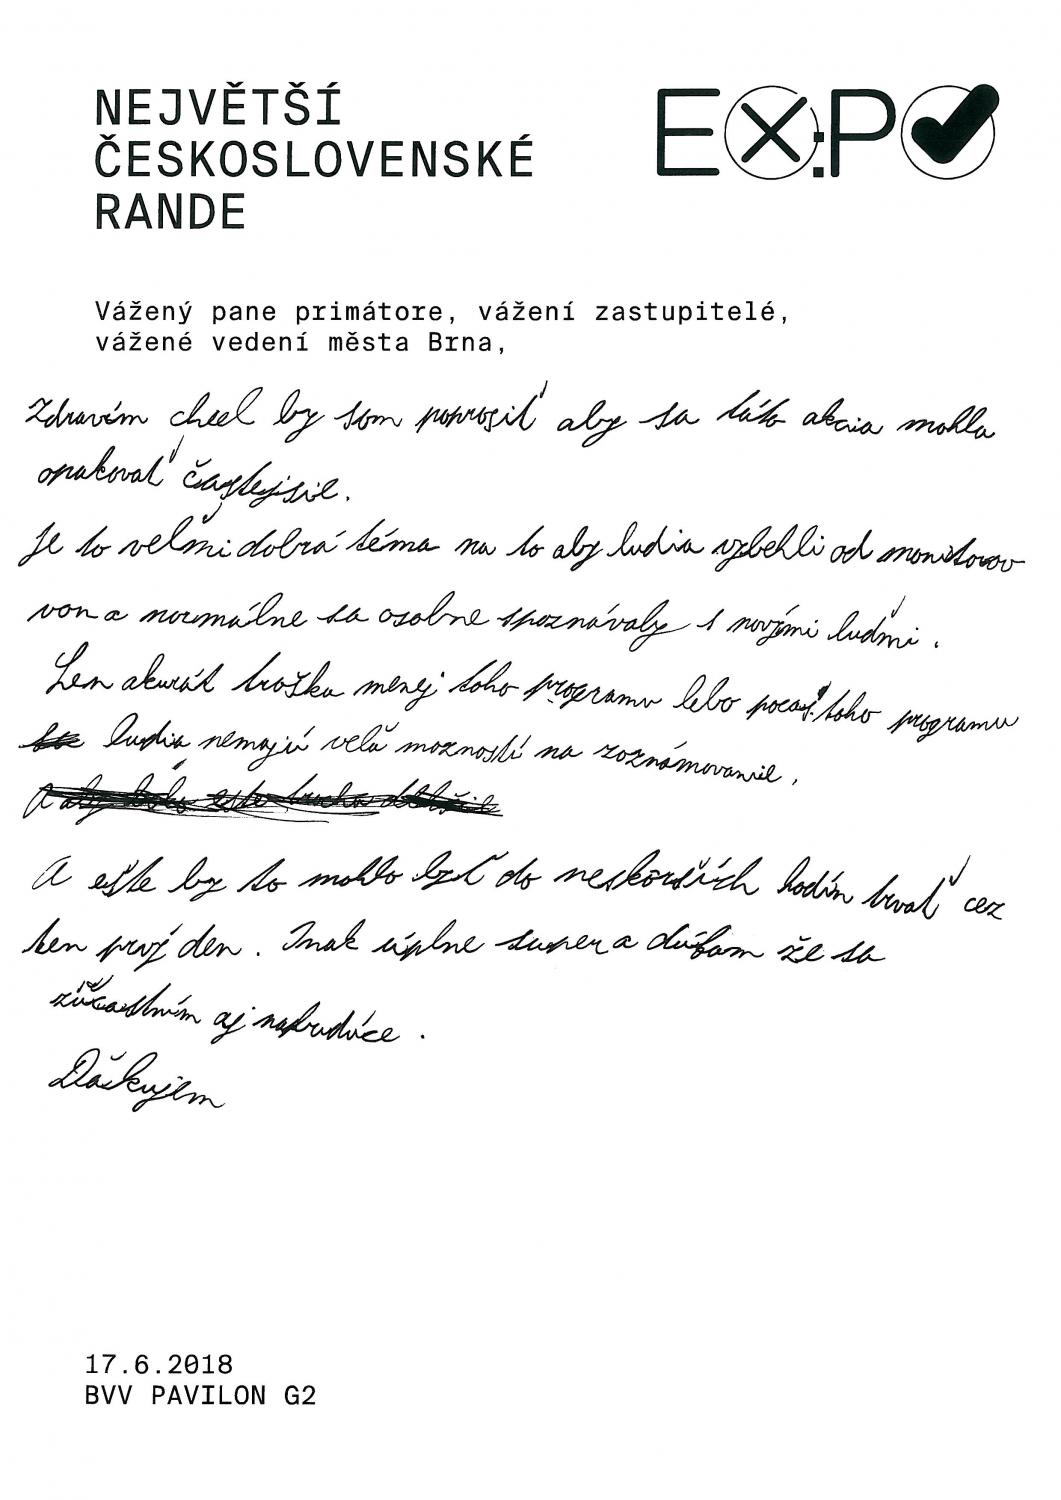 NEJVĚTŠÍ
ČESKOSLOVENSKÉ
RANDE
EX:PO
Vážený pane primátore, vážení zastupitelé,
vážené vedení města Brna,
Zdravím chcel by som poprosiť aby sa táto akcia mohla
opakovať častejsie.
Je to veľmi dobrá téma na to aby ludia vybehli od monitorov
von a normálne sa osobne spoznávaly s novými luďmi.
Len akurát troška menej toho programu lebo počas toho programu
ludia nemajú velа možností na zoznámovanie.
A ešte by to mohlo byť do neskorších hodín trvať cez
ten prvý den. Inak úplne super a dúfam že sa
zúčastním aj nabudúce.
Ďakujem
17.6.2018
BVV PAVILON G2